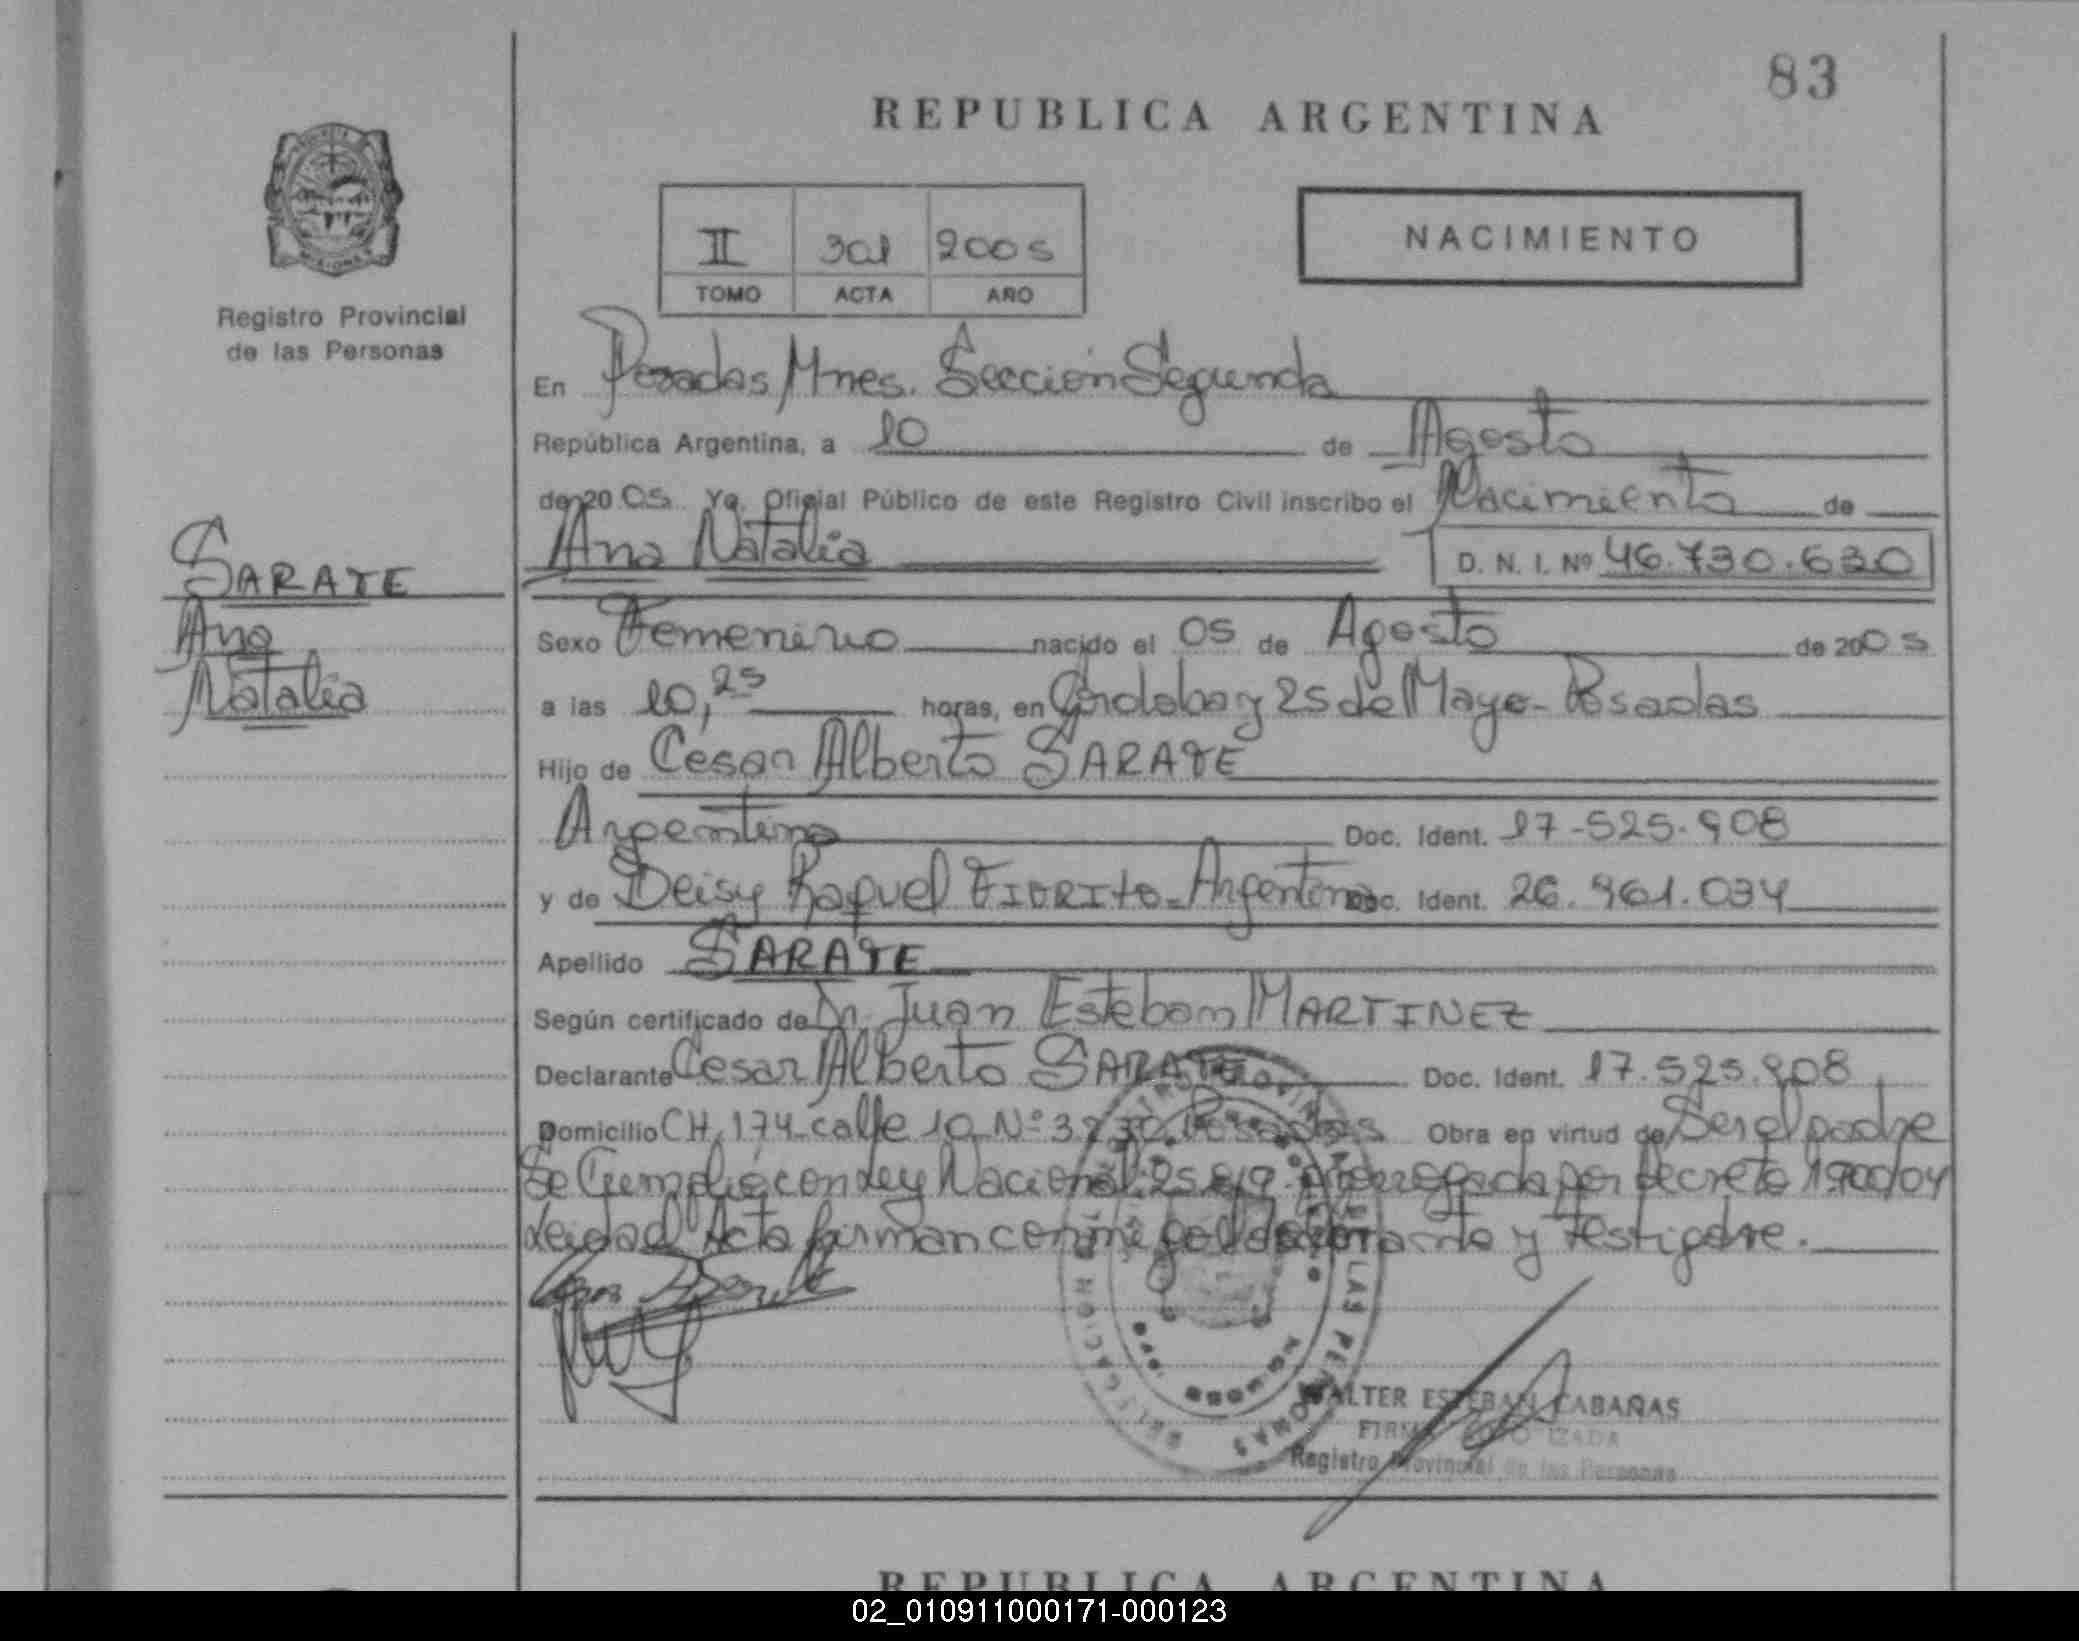 83
REPUBLICA ARGENTINA
II 301 2005
TOMO ACTA AÑO
NACIMIENTO
Registro Provincial
de las Personas
En Posadas Mnes. Sección Segunda
República Argentina, a 10 de Agosto
de 2005. Yo, Oficial Público de este Registro Civil inscribo el Nacimiento de
Ana Natalia D. N. I. Nº 46.730.630
SARATE
Ana
Natalia
Sexo Femenino nacido el 05 de Agosto de 2005
a las 10,25 horas, en Córdoba y 25 de Mayo - Posadas
Hijo de Cesar Alberto SARATE
Argentino Doc. Ident. 17.525.908
y de Deisy Raquel FIORITO - Argentina Doc. Ident. 26.961.034
Apellido SARATE
Según certificado de Dr. Juan Esteban MARTINEZ
Declarante Cesar Alberto SARATE Doc. Ident. 17.525.908
Domicilio CH. 174 calle 10 Nº Posadas Obra en virtud de Ser el padre
Se Cumplió con Ley Nacional 25.819 prorrogada por decreto 1900/04
Leida el Acta firman conmigo el declarante y testigo
WALTER ESTEBAN CABAÑAS
FIRMA AUTORIZADA
Registro Provincial de las Personas
REPUBLICA ARGENTINA
02_010911000171-000123